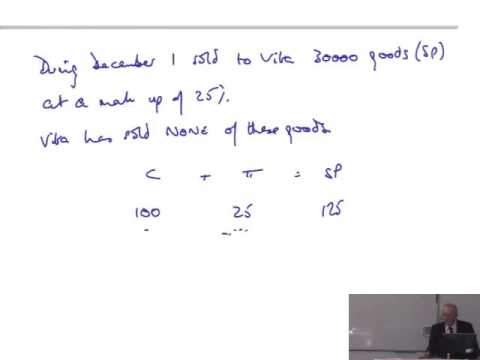 During december I sold to Vita 30000 goods (SP)
at a mark up of 25%.
Vita has sold NONE of these goods.
C + π = SP
100 25 125